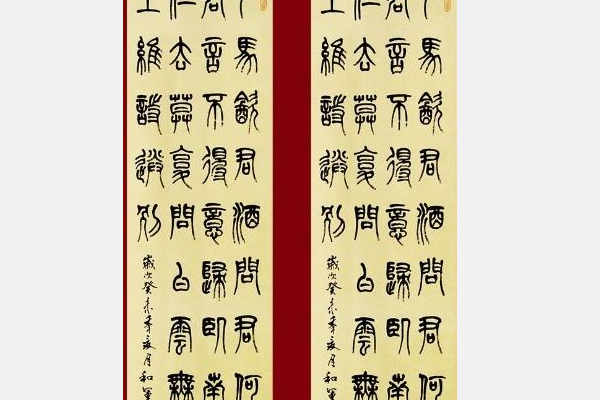 馬飲君酒問君何
君言不得意歸臥南
但去莫復問白雲無
王維詩送別 歲次癸未季夏月和軍
馬飲君酒問君何
君言不得意歸臥南
但去莫復問白雲無
王維詩送別 歲次癸未季夏月和軍